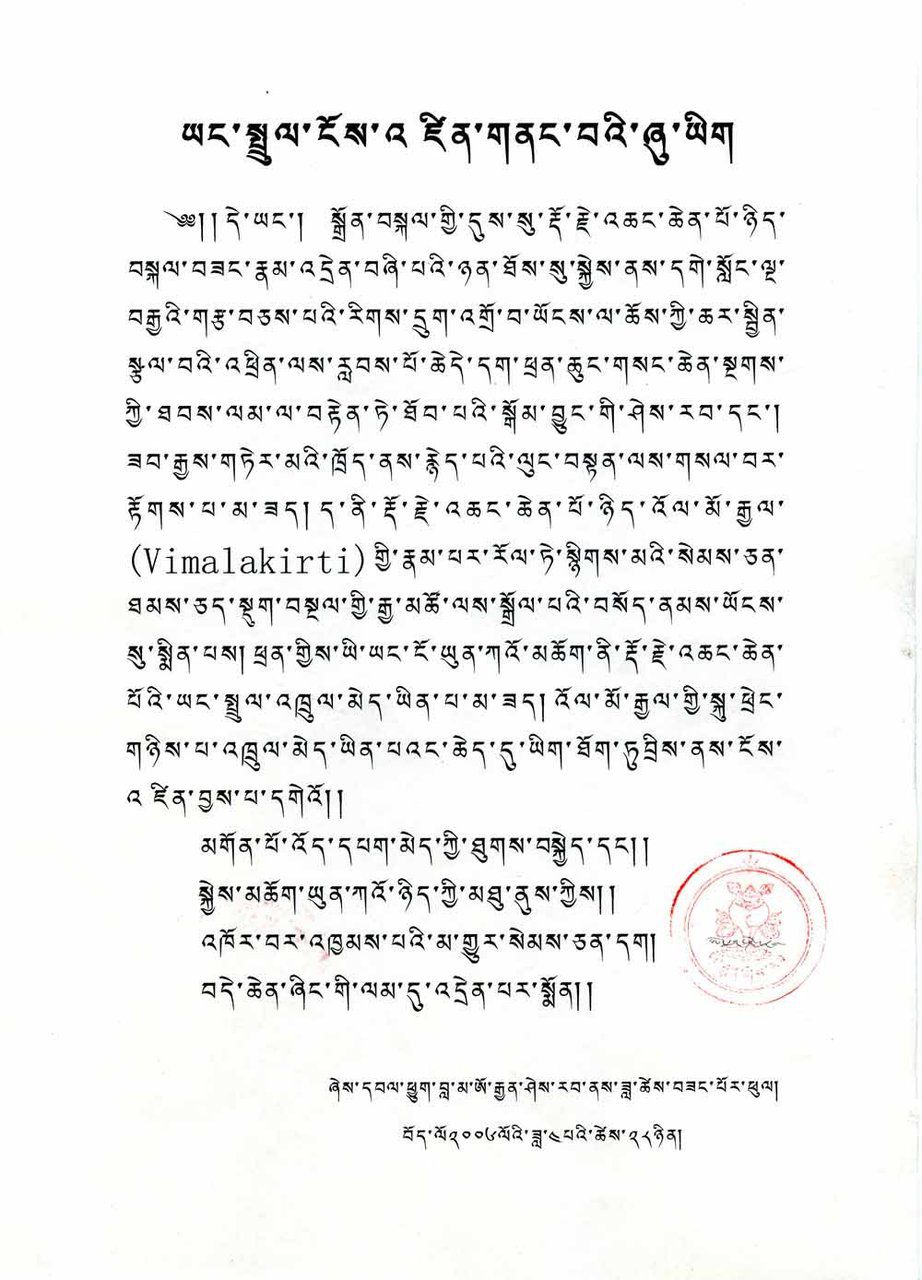 ཡང་སྤྲུལ་ངོས་འ ཛིན་གནང་བའི་ཞུ་ཡིག
༄༅། །དེ་ཡང་། སྔོན་བསྐལ་གྱི་དུས་སུ་རྡོ་རྗེ་འཆང་ཆེན་པོ་ཉིད་
བསྐལ་བཟང་རྣམ་འདྲེན་བཞི་པའི་ཉན་ཐོས་སུ་སྐྱེས་ནས་དགེ་སློང་ལྔ་
བརྒྱའི་གཙྭ་བཅས་པའི་རིགས་དྲུག་འགྲོ་བ་ཡོངས་ལ་ཆོས་ཀྱི་ཆར་སྦྱིན་
སྩལ་བའི་འཕྲིན་ལས་རླབས་པོ་ཆེདེ་དག་ཕྲན་ཆུང་གསང་ཆེན་སྔགས་
ཀྱི་ཐབས་ལམ་ལ་བརྟེན་ཏེ་ཐོབ་པའི་སྒོམ་བྱུང་གི་ཤེས་རབ་དང་།
ཟབ་རྒྱས་གཏེར་མའི་ཁྲོད་ནས་རྙེད་པའི་ལུང་བསྟན་ལས་གསལ་བར་
རྟོགས་པ་མ་ཟད། ད་ནི་རྡོ་རྗེ་འཆང་ཆེན་པོ་ཉིད་འོལ་མོ་རྒྱལ་
(Vimalakirti)གྱི་རྣམ་པར་རོལ་ཏེ་སྙིགས་མའི་སེམས་ཅན་
ཐམས་ཅད་སྡུག་བསྔལ་གྱི་རྒྱ་མཚོ་ལས་སྒྲོལ་པའི་བསོད་ནམས་ཡོངས་
སུ་སྨིན་པས། ཕྲན་གྱིས་ཡི་ཡང་ངོ་ཡུན་ཀའོ་མཆོག་ནི་རྡོ་རྗེ་འཆང་ཆེན་
པོའི་ཡང་སྤྲུལ་འཁྲུལ་མེད་ཡིན་པ་མ་ཟད། འོལ་མོ་རྒྱལ་གྱི་སྐུ་ཕྲེང་
གཉིས་པ་འཁྲུལ་མེད་ཡིན་པའང་ཆེད་དུ་ཡིག་ཐོག་ཏུ་བྲིས་ནས་ངོས་
འ ཛིན་བྱས་པ་དགེའོ།།
མགོན་པོ་འོད་དཔག་མེད་ཀྱི་ཐུགས་བསྐྱེད་དང་།།
སྐྱེས་མཆོག་ཡུན་ཀའོ་ཉིད་ཀྱི་མཐུ་ནུས་ཀྱིས།།
འཁོར་བར་འཁྱམས་པའི་མ་གྱུར་སེམས་ཅན་དག།
བདེ་ཆེན་ཞིང་གི་ལམ་དུ་འདྲེན་པར་སྨོན།།
ཞེས་དབལ་ཕྱུག་བླ་མ་ཨོ་རྒྱན་ཤེས་རབ་ནས་ཟླ་ཚེས་བཟང་པོར་ཕུལ།
བོད་ལོ༢༠༠༦ལོའི་ཟླ་༤པའི་ཚེས་༢༨ཉིན།